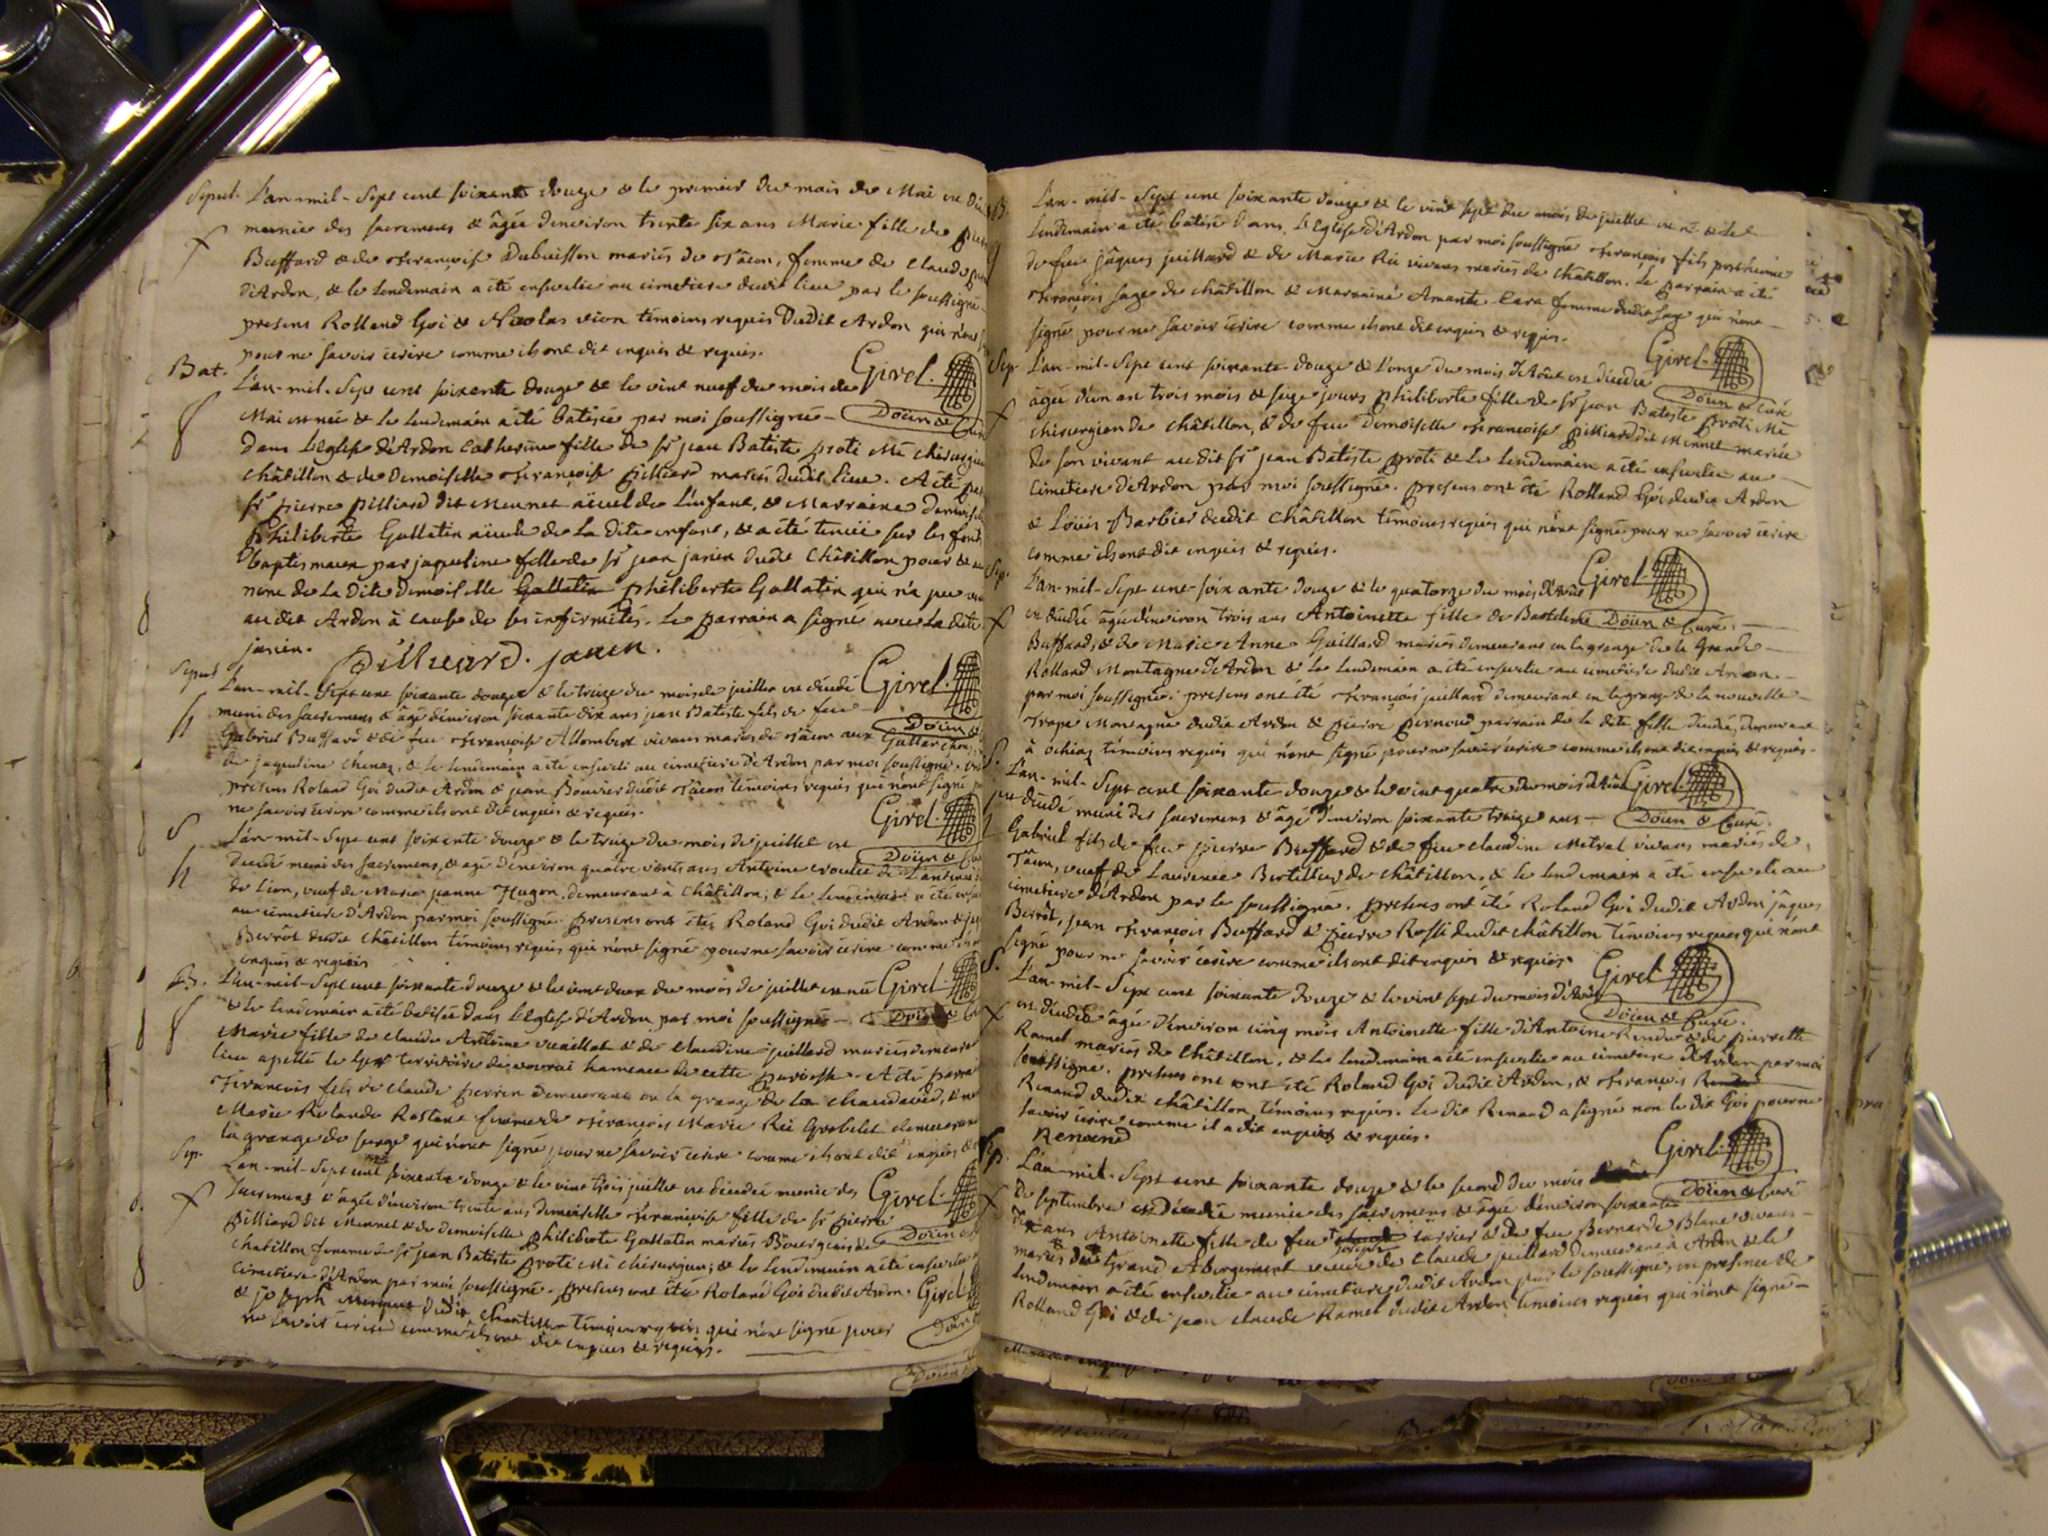 Sepul. L'an-mil-Sept cent soixante douze & le premier du mois de Mai
munie des sacremens & âgée denviron trente six ans Marie fille de
Buffard & de françoise Dubuisson mariés de Tâcon, femme de Claude
d'Ardon, & le lendemain a été ensevelie au cimetiere dudit lieu par le soussigné
presens Rolland Goi & Nicolas témoins requis Dudit Ardon qui n'ont
pour ne savoir écrire comme ils ont dit enquis & requis.
Girel
Bat. L'an-mil-Sept cent soixante douze & le vint neuf du mois de
Doüen &
Mai est née & le lendemain a été batisée par moi soussigné
dans l'Eglise d'Ardon Catherine fille de Sr jean Batiste proti Me chirurgien
châtillon & de Demoiselle françoise pilliard mariés dudit lieu. A été
Sr pierre pilliard dit Meunet aïeul de l'enfant, & Marraine
Philiberte Gallatin aïeule de la dite enfant, & a été tenüe sur les
baptismaux par jaqueline fille de Sr jean janin dudit Châtillon pour &
nom de la dite Demoiselle philiberte Gallatin qui n'a pu
audit Ardon à cause de ses infirmités. Le parrain a signé avec la dite
janin.
pilliard. janin.
Girel
Doüen &
Sepul L'an-mil-Sept cent soixante douze & le treize du mois de juillet est décédé
muni des sacremens & âgé d'environ soixante dix ans jean Batiste fils de feu
Gabriel Buffard & de feu françoise Allombert vivans mariés de Tâcon
de jaqueline & le lendemain a été enseveli au cimetiere d'Ardon par moi soussigné.
presens Roland Goi dudit Ardon & jean Bouvier dudit Tâcon témoins requis qui n'ont signé
ne savoir écrire comme ils ont dit enquis & requis.
Girel
Doüen &
S L'an-mil-Sept cent soixante douze & le treize du mois de juillet est
décédé muni des sacremens, & âgé d'environ quatre vints ans Antoine
de Lion, veuf de Marie jeanne Hugon, demeurant à Châtillon, & le lendemain a été
au cimetiere d'Ardon par moi soussigné. presens ont été Roland Goi dudit Ardon &
Berrôt dudit Châtillon témoins requis qui n'ont signé pour ne savoir écrire comme
enquis & requis
Girel
B. L'an-mil-Sept cent soixante douze & le vint deux du mois de juillet est née
& le lendemain a été batisée dans l'Eglise d'Ardon par moi soussigné
Marie fille de claude Antoine & de claudine juillard mariés
lieu apellé le territoire de hameau de cette paroisse. A été
françois fils de claude perrin demeurant en la grange de la
Marie Rolande Rostant femme de françois Marie Grobelet
la grange de qui n'ont signé pour ne savoir écrire comme ils ont dit enquis &
Girel
Sep. L'an-mil-Sept cent soixante douze & le vint trois juillet est décédée munie des
sacremens & âgée d'environ trente ans demoiselle françoise fille de Sr pierre
pilliard dit Meunet & de demoiselle philiberte Gallatin mariés Bourgeois de
Doüen
chatillon femme de Sr jean Batiste proti Me chirurgien; & le lendemain a été
cimetiere d'Ardon par moi soussigné. presens ont été Roland Goi dudit Ardon
Girel
& joseph dudit témoins requis qui n'ont signé pour
ne savoir écrire comme ils ont dit enquis & requis.
Doüen
B. L'an-mil-Sept cent soixante douze & le vint sept du mois de juillet est né & le
lendemain a été batisé dans l'Eglise d'Ardon par moi soussigné françois fils posthume
de feu jâques juillard & de Marie vivans mariés de châtillon. Le parrain a été
françois sage de châtillon & Marraine Amante femme dudit sage qui n'ont
signé pour ne savoir écrire comme ils ont dit enquis & requis.
Girel
Doüen & Curé
Sep. L'an-mil-Sept cent soixante douze & l'onze du mois d'Aôut est décédée
âgée d'un an trois mois & seize jours philiberte fille de Sr jean Batiste proti Me
chirurgien de Châtillon, & de feu Demoiselle françoise pilliard dit Meunet mariée
de son vivant audit Sr jean Batiste proti & le lendemain a été ensevelie au
cimetiere d'Ardon par moi soussigné. presens ont été Rolland Goi dudit Ardon
& Loüis Barbier dudit Châtillon témoins requis qui n'ont signé pour ne savoir écrire
comme ils ont dit enquis & requis.
Girel
Sep. L'an-mil-Sept cent-soixante douze & le quatorze du mois d'Aôut
est décédée âgée d'environ trois ans Antoinette fille de
Doüen & Curé
Buffard, & de Marie Anne Gaillard mariés demeurans en la grange de la Grande
Rolland Montagne d'Ardon & le lendemain a été ensevelie au cimetiere dudit Ardon
par moi soussigné. presens ont été françois juillard demeurant en la grange de la nouvelle
Montagne dudit Ardon & pierre parrain de la dite fille décédée, demeurant
à ochiaz témoins requis qui n'ont signé pour ne savoir écrire comme ils ont dit enquis & requis.
Girel
S. L'an-mil-Sept cent soixante douze & le vint quatre du mois d'Aôut
est décédé muni des sacremens & âgé d'environ soixante treize ans
Doüen & Curé
Gabriel fils de feu pierre Buffard & de feu claudine Metral vivans mariés de
Tâcon, veuf de Laurence de Châtillon, & le lendemain a été enseveli au
cimetiere d'Ardon par le soussigné. presens ont été Roland Goi dudit Ardon jâques
Berrôt, jean françois Buffard & pierre dudit châtillon témoins requis qui n'ont
signé pour ne savoir écrire comme ils ont dit enquis & requis
Girel
S. L'an-mil-Sept cent soixante douze & le vint sept du mois d'Aôut
Doüen & Curé
est décédée âgée d'environ cinq mois Antoinette fille d'Antoine & de pierrette
Ramel mariés de Châtillon, & le lendemain a été ensevelie au cimetiere d'Ardon par moi
soussigné. presens ont été Roland Goi dudit Ardon, & françois
Renand dudit châtillon témoins requis. Le dit Renand a signé non le dit Goi pour ne
savoir écrire comme il a dit enquis & requis.
Renand
Girel
Doüen & Curé
Sep. L'an-mil-Sept cent soixante douze & le second du mois
de septembre est décédée munie des sacremens & âgée d'environ soixante
dix ans Antoinette fille de feu joseph & de feu Bernarde Blanc vivans
mariés du Grand Abergement veuve de claude juillard demeurant à Ardon & le
lendemain a été ensevelie au cimetiere dudit Ardon par le soussigné, en presence de
Rolland Goi & de jean claude Ramel dudit Ardon témoins requis qui n'ont signé